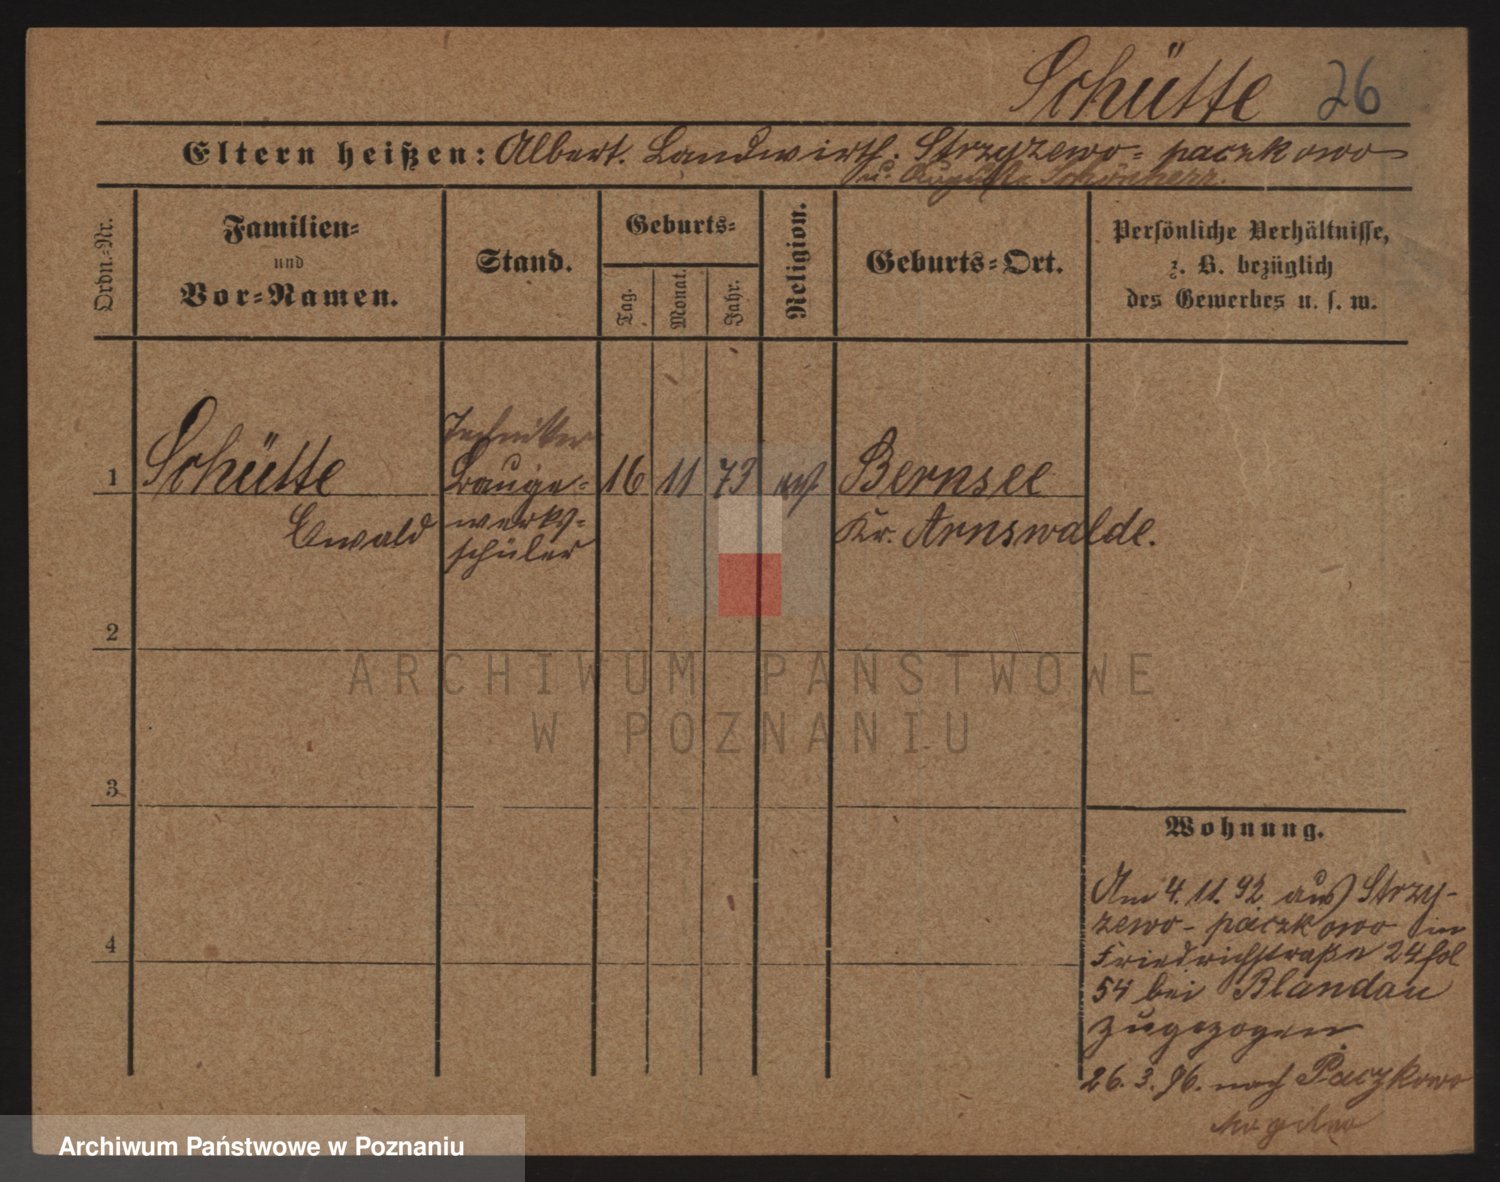 Schütte 26
Eltern heißen: Albert. Landwirth. Strzyzewo-paczkowo
u. Auguste Schönherr.
Ordn.-Nr.
Familien-
und
Vor-Namen.
Stand.
Geburts-
Tag.
Monat.
Jahr.
Religion.
Geburts-Ort.
Persönliche Verhältnisse,
z. B. bezüglich
des Gewerbes u. s. w.
Techniker
1 Schütte Bauge- 16 11 73 Bernsee
Ewald werks- Kr. Arnswalde.
schüler
2
ARCHIWUM PAŃSTWOWE
W POZNANIU
3
Wohnung.
Am 4. 11. 92 aus Strzy-
zewo-paczkowo in
4
Friedrichstraße 24 fol
54 bei Blandau
zugezogen
26. 3. 96. nach Paczkowo
Mogilno
Archiwum Państwowe w Poznaniu